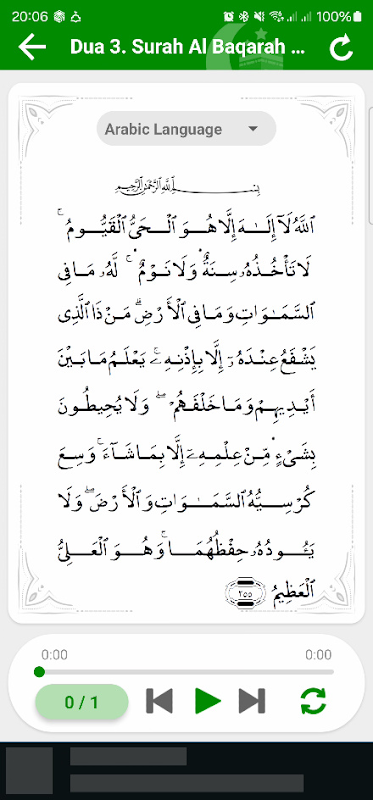 20:06
100%
Dua 3. Surah Al Baqarah ...
Arabic Language
بِسْمِ ٱللَّهِ ٱلرَّحْمَٰنِ ٱلرَّحِيمِ
ٱللَّهُ لَآ إِلَٰهَ إِلَّا هُوَ ٱلْحَىُّ ٱلْقَيُّومُ ۚ
لَا تَأْخُذُهُۥ سِنَةٌ وَلَا نَوْمٌ ۚ لَّهُۥ مَا فِى
ٱلسَّمَٰوَٰتِ وَمَا فِى ٱلْأَرْضِ ۗ مَن ذَا ٱلَّذِى
يَشْفَعُ عِندَهُۥٓ إِلَّا بِإِذْنِهِۦ ۚ يَعْلَمُ مَا بَيْنَ
أَيْدِيهِمْ وَمَا خَلْفَهُمْ ۖ وَلَا يُحِيطُونَ
بِشَىْءٍ مِّنْ عِلْمِهِۦٓ إِلَّا بِمَا شَآءَ ۚ وَسِعَ
كُرْسِيُّهُ ٱلسَّمَٰوَٰتِ وَٱلْأَرْضَ ۖ وَلَا
يَـُٔودُهُۥ حِفْظُهُمَا ۚ وَهُوَ ٱلْعَلِىُّ
ٱلْعَظِيمُ ٢٥٥
0:00 0:00
0 / 1